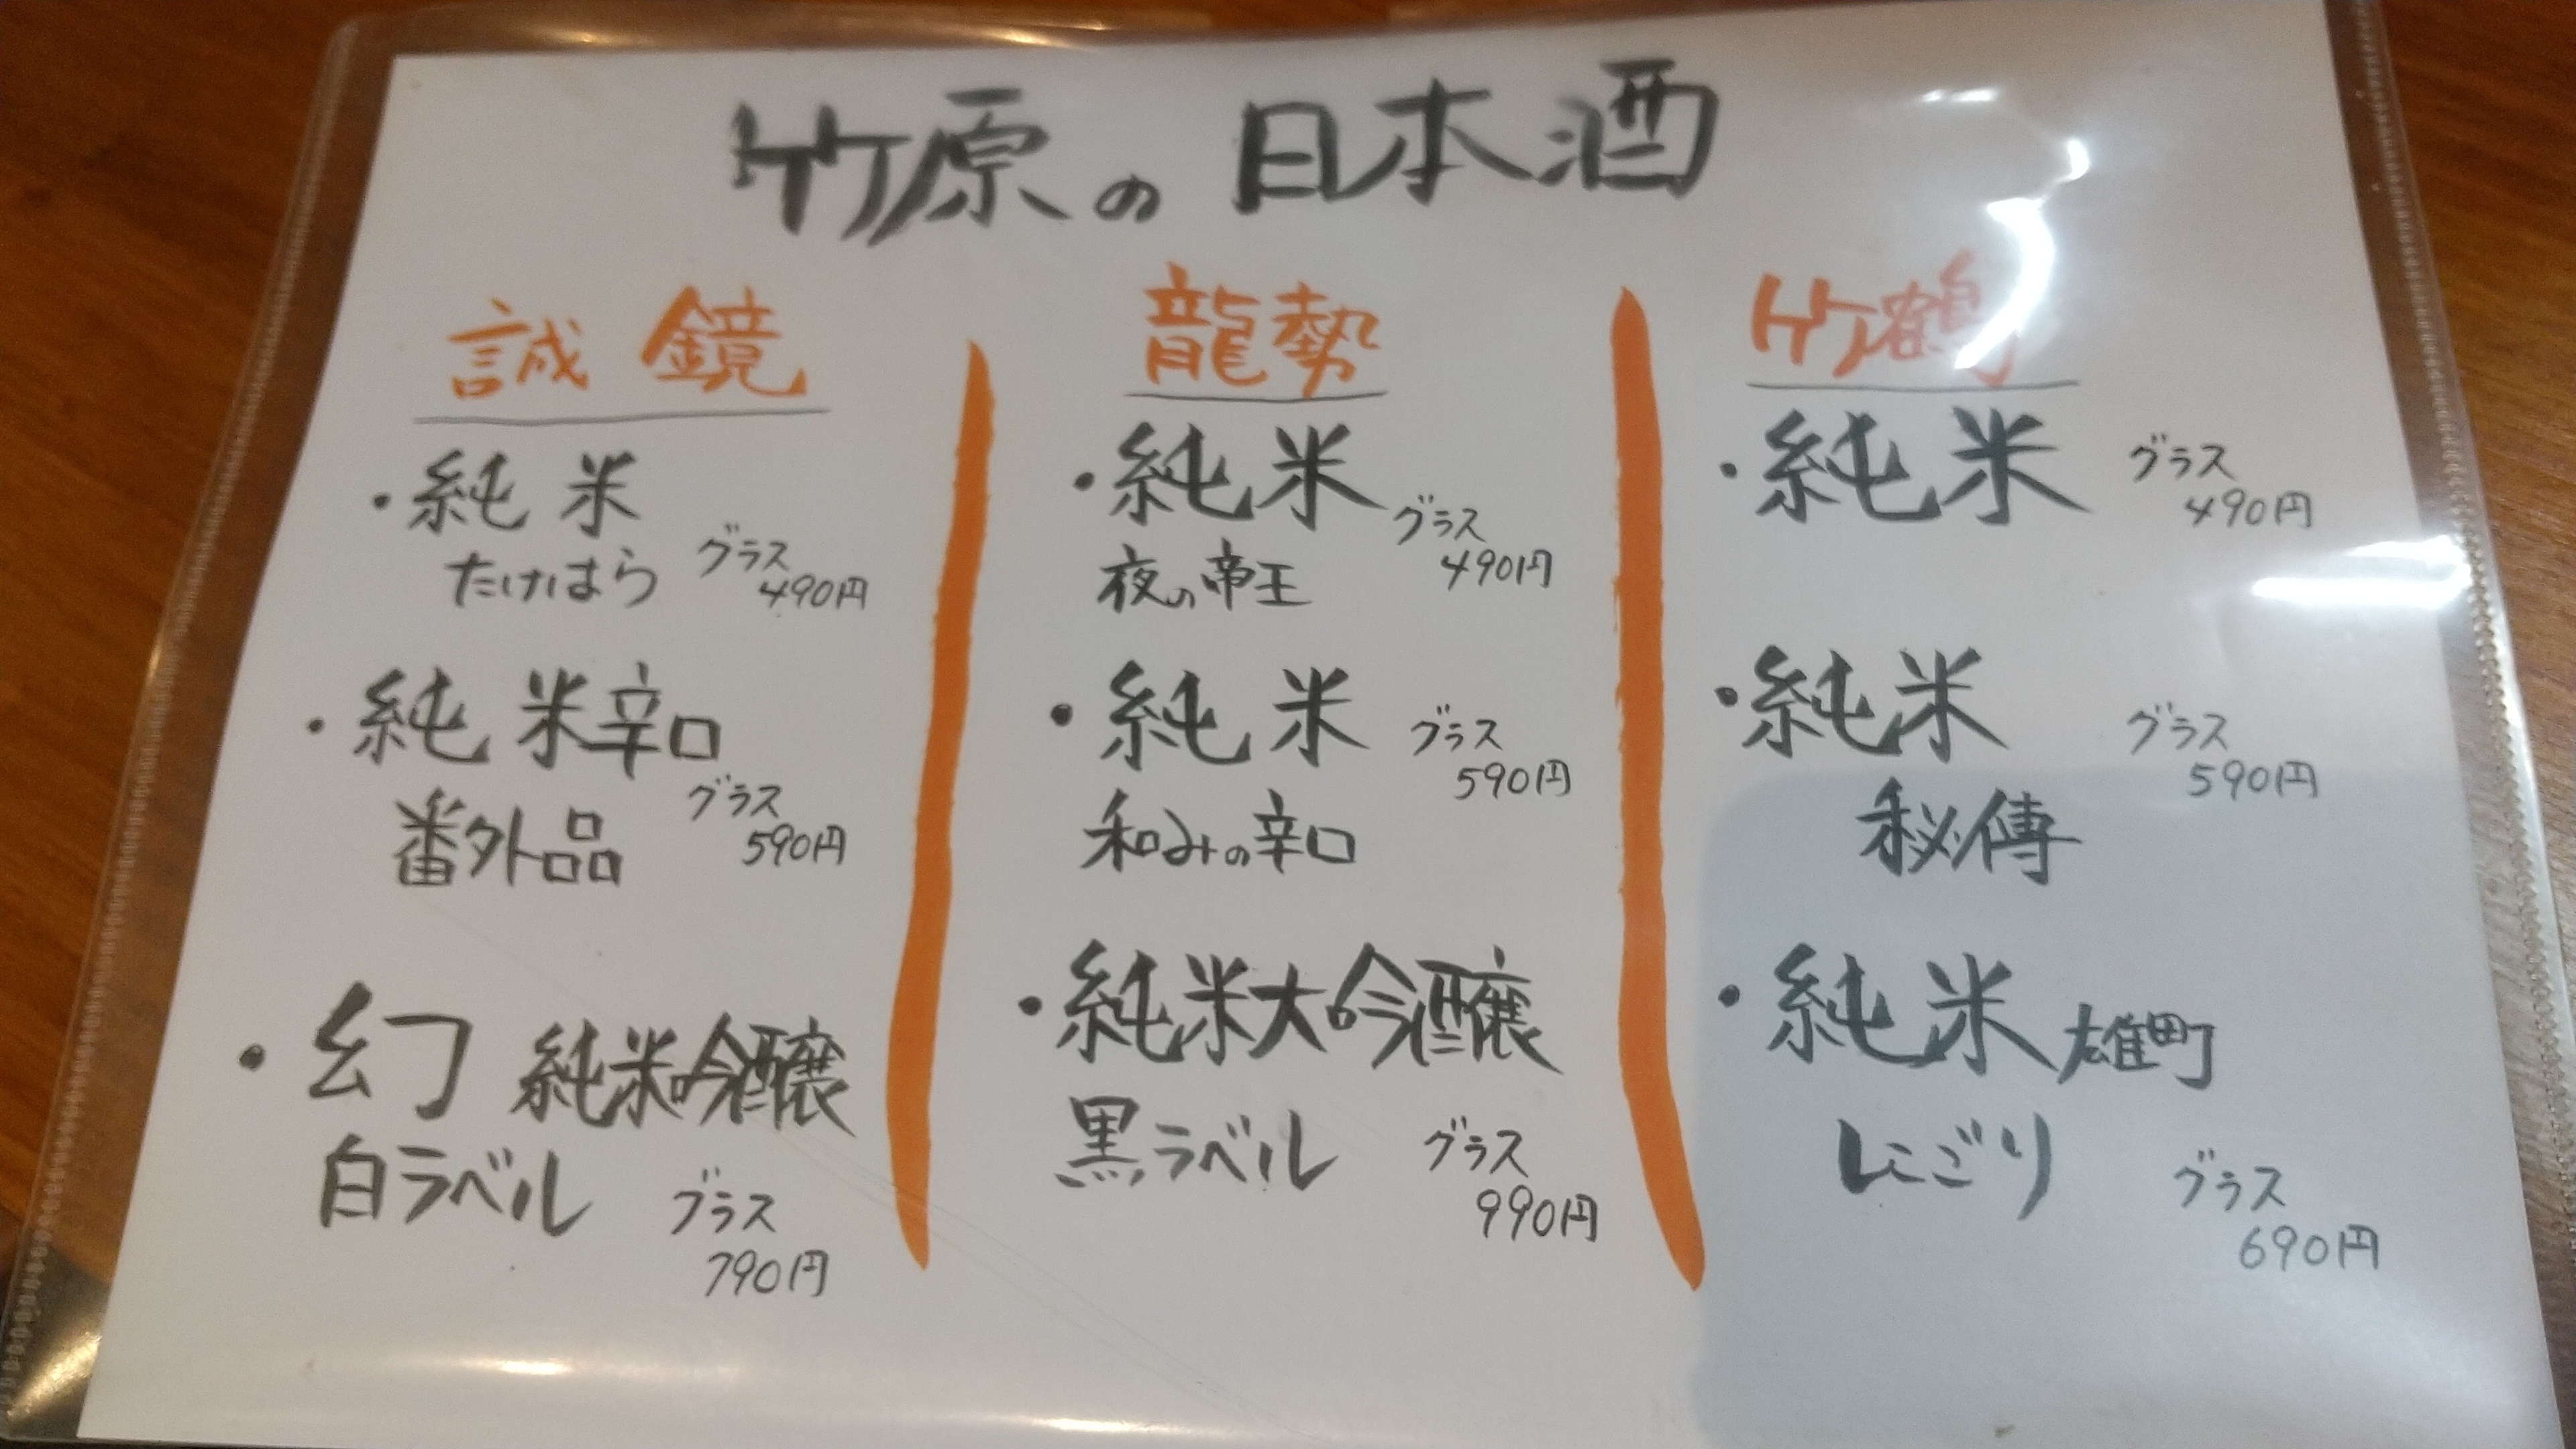 竹原の日本酒
誠鏡
・純米
たけはら
グラス
490円
・純米辛口
番外品
グラス
590円
・幻 純米吟醸
白ラベル
グラス
790円
龍勢
・純米
夜の帝王
グラス
490円
・純米
和みの辛口
グラス
590円
・純米大吟醸
黒ラベル
グラス
990円
竹鶴
・純米
グラス
490円
・純米
秘傳
グラス
590円
・純米 雄町
にごり
グラス
690円